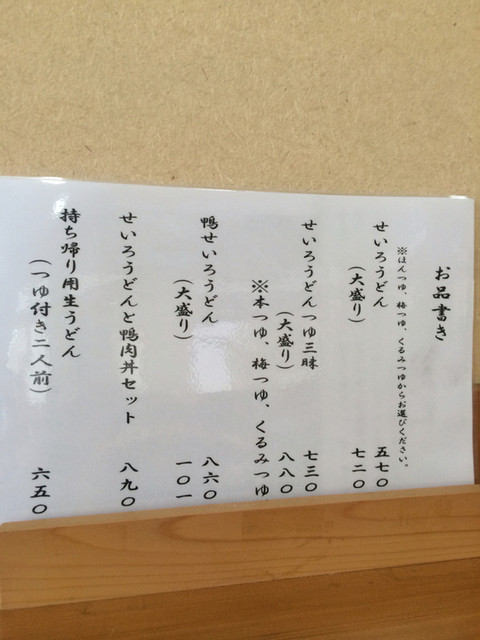 お品書き
※ほんつゆ、梅つゆ、くるみつゆからお選びください。
せいろうどん 五七〇
(大盛り) 七二〇
せいろうどんつゆ三昧 七三〇
(大盛り) 八八〇
※本つゆ、梅つゆ、くるみつゆ
鴨せいろうどん 八六〇
(大盛り) 一〇一
せいろうどんと鴨肉丼セット 八九〇
持ち帰り用生うどん
(つゆ付き二人前) 六五〇